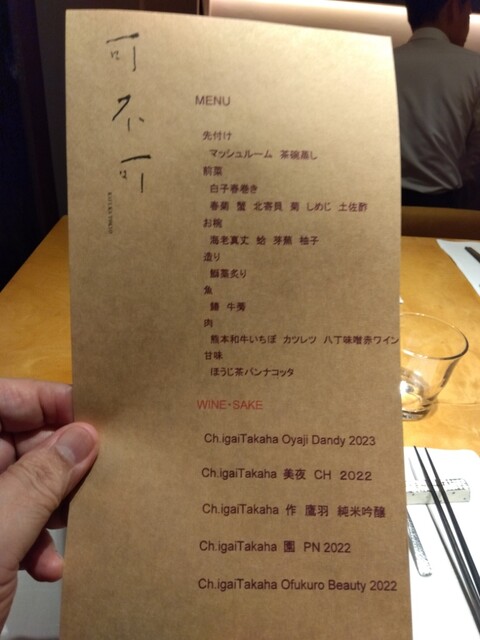 可不可
MENU
先付け
マッシュルーム 茶碗蒸し
前菜
白子春巻き
春菊 蟹 北寄貝 菊 しめじ 土佐酢
お椀
海老真丈 蛤 芽蕪 柚子
造り
鰤藁炙り
魚
鰆 牛蒡
肉
熊本和牛いちぼ カツレツ 八丁味噌赤ワイン
甘味
ほうじ茶パンナコッタ
WINE・SAKE
Ch.igaiTakaha Oyaji Dandy 2023
Ch.igaiTakaha 美夜 CH 2022
Ch.igaiTakaha 作 鷹羽 純米吟醸
Ch.igaiTakaha 園 PN 2022
Ch.igaiTakaha Ofukuro Beauty 2022